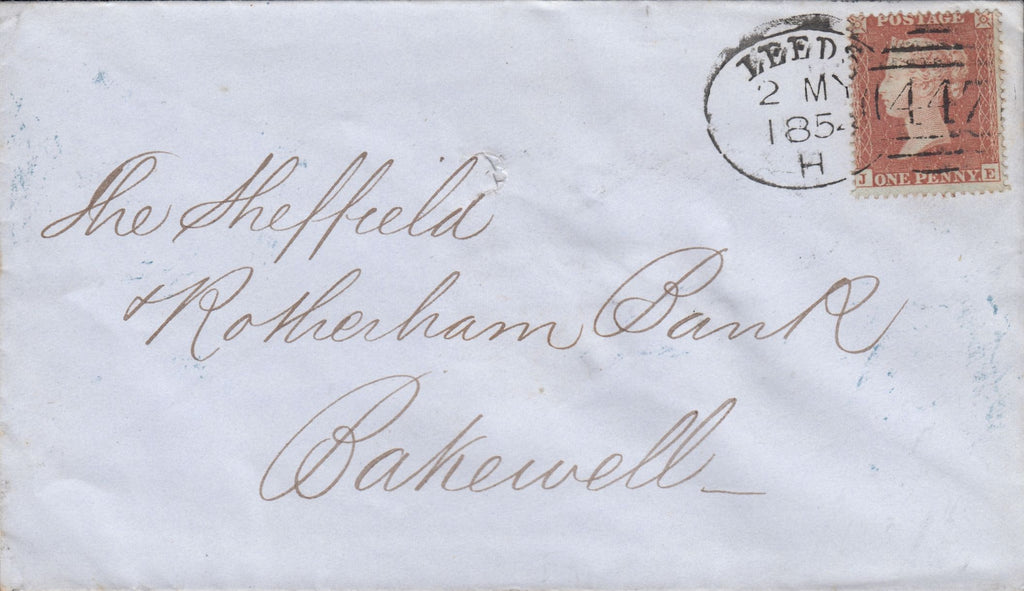 POSTAGE
LEEDS
2 MY
1854
H
447
J ONE PENNY E
The Sheffield
& Rotherham Bank
Bakewell